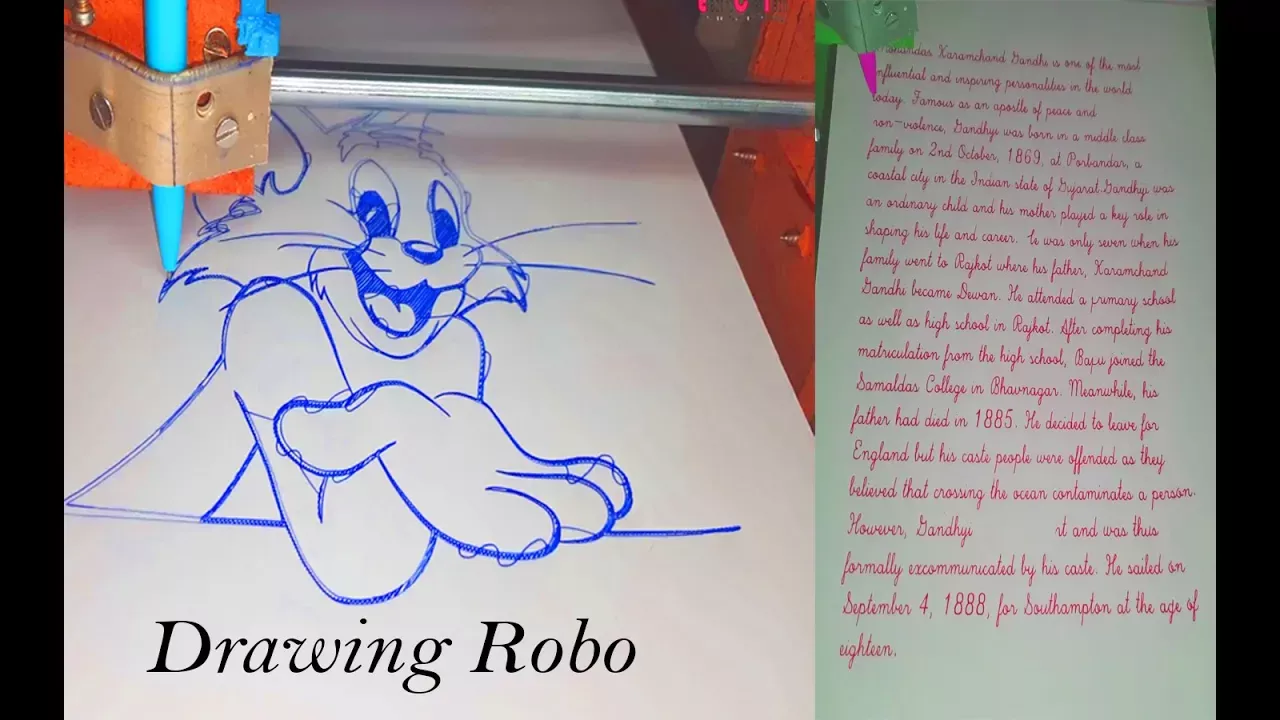 Drawing Robo
Karamchand Gandhi is one of the most
influential and inspiring personalities in the world
today. Famous as an apostle of peace and
non-violence, Gandhiji was born in a middle class
family on 2nd October, 1869, at Porbandar, a
coastal city in the Indian state of Gujarat.Gandhiji was
an ordinary child and his mother played a key role in
shaping his life and career. He was only seven when his
family went to Rajkot where his father, Karamchand
Gandhi became Dewan. He attended a primary school
as well as high school in Rajkot. After completing his
matriculation from the high school, Bapu joined the
Samaldas College in Bhavnagar. Meanwhile, his
father had died in 1885. He decided to leave for
England but his caste people were offended as they
believed that crossing the ocean contaminates a person.
However, Gandhiji and was thus
formally excommunicated by his caste. He sailed on
September 4, 1888, for Southampton at the age of
eighteen.